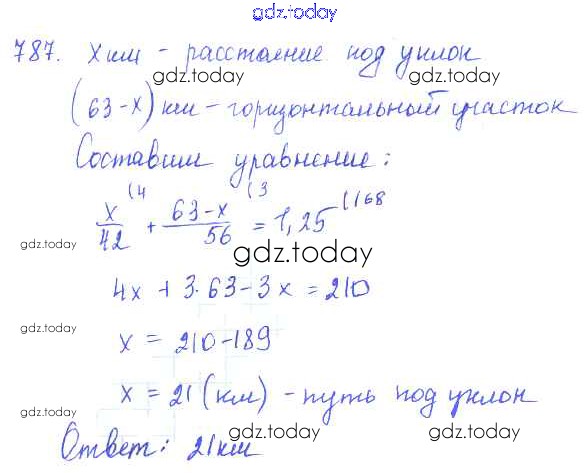 gdz.today
787. х км - расстояние под уклон
gdz.today gdz.today
(63-х) км - горизонтальный участок
Составим уравнение:
gdz.today
х/42 (4 + 63-х/56 (3 = 1,25 (168
gdz.today
gdz.today
4х + 3·63-3х = 210
gdz.today
х = 210-189
gdz.today
х = 21 (км) - путь под уклон
gdz.today
gdz.today
Ответ: 21км
gdz.today